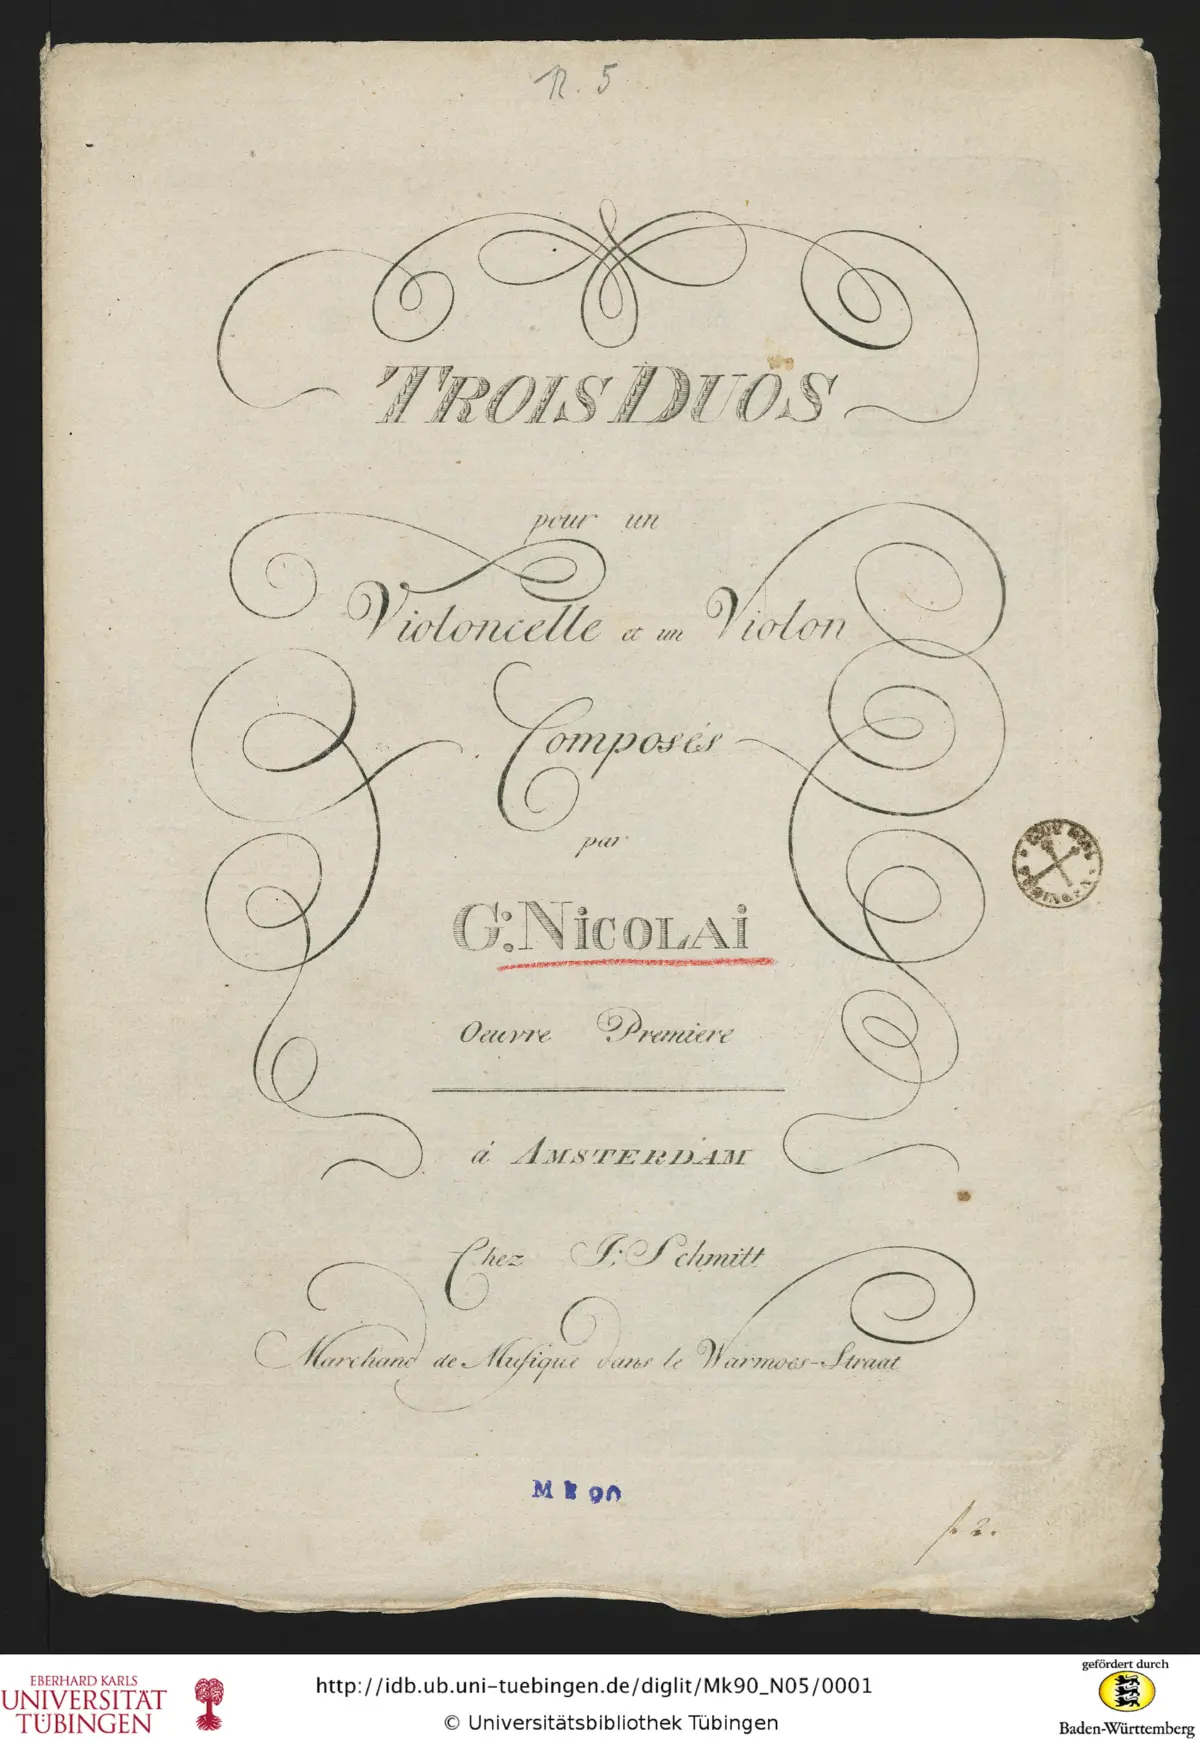 N. 5
TROIS DUOS
pour un
Violoncelle et un Violon
Composés
par
G: NICOLAi
Oeuvre Premiere
á AMSTERDAM
Chez J: Schmitt
Marchand de Musique dans le Warmoes-Straat
Mk 90
f. 2.
EBERHARD KARLS
UNIVERSITÄT
TÜBINGEN
http://idb.ub.uni-tuebingen.de/diglit/Mk90_N05/0001
© Universitätsbibliothek Tübingen
gefördert durch
Baden-Württemberg